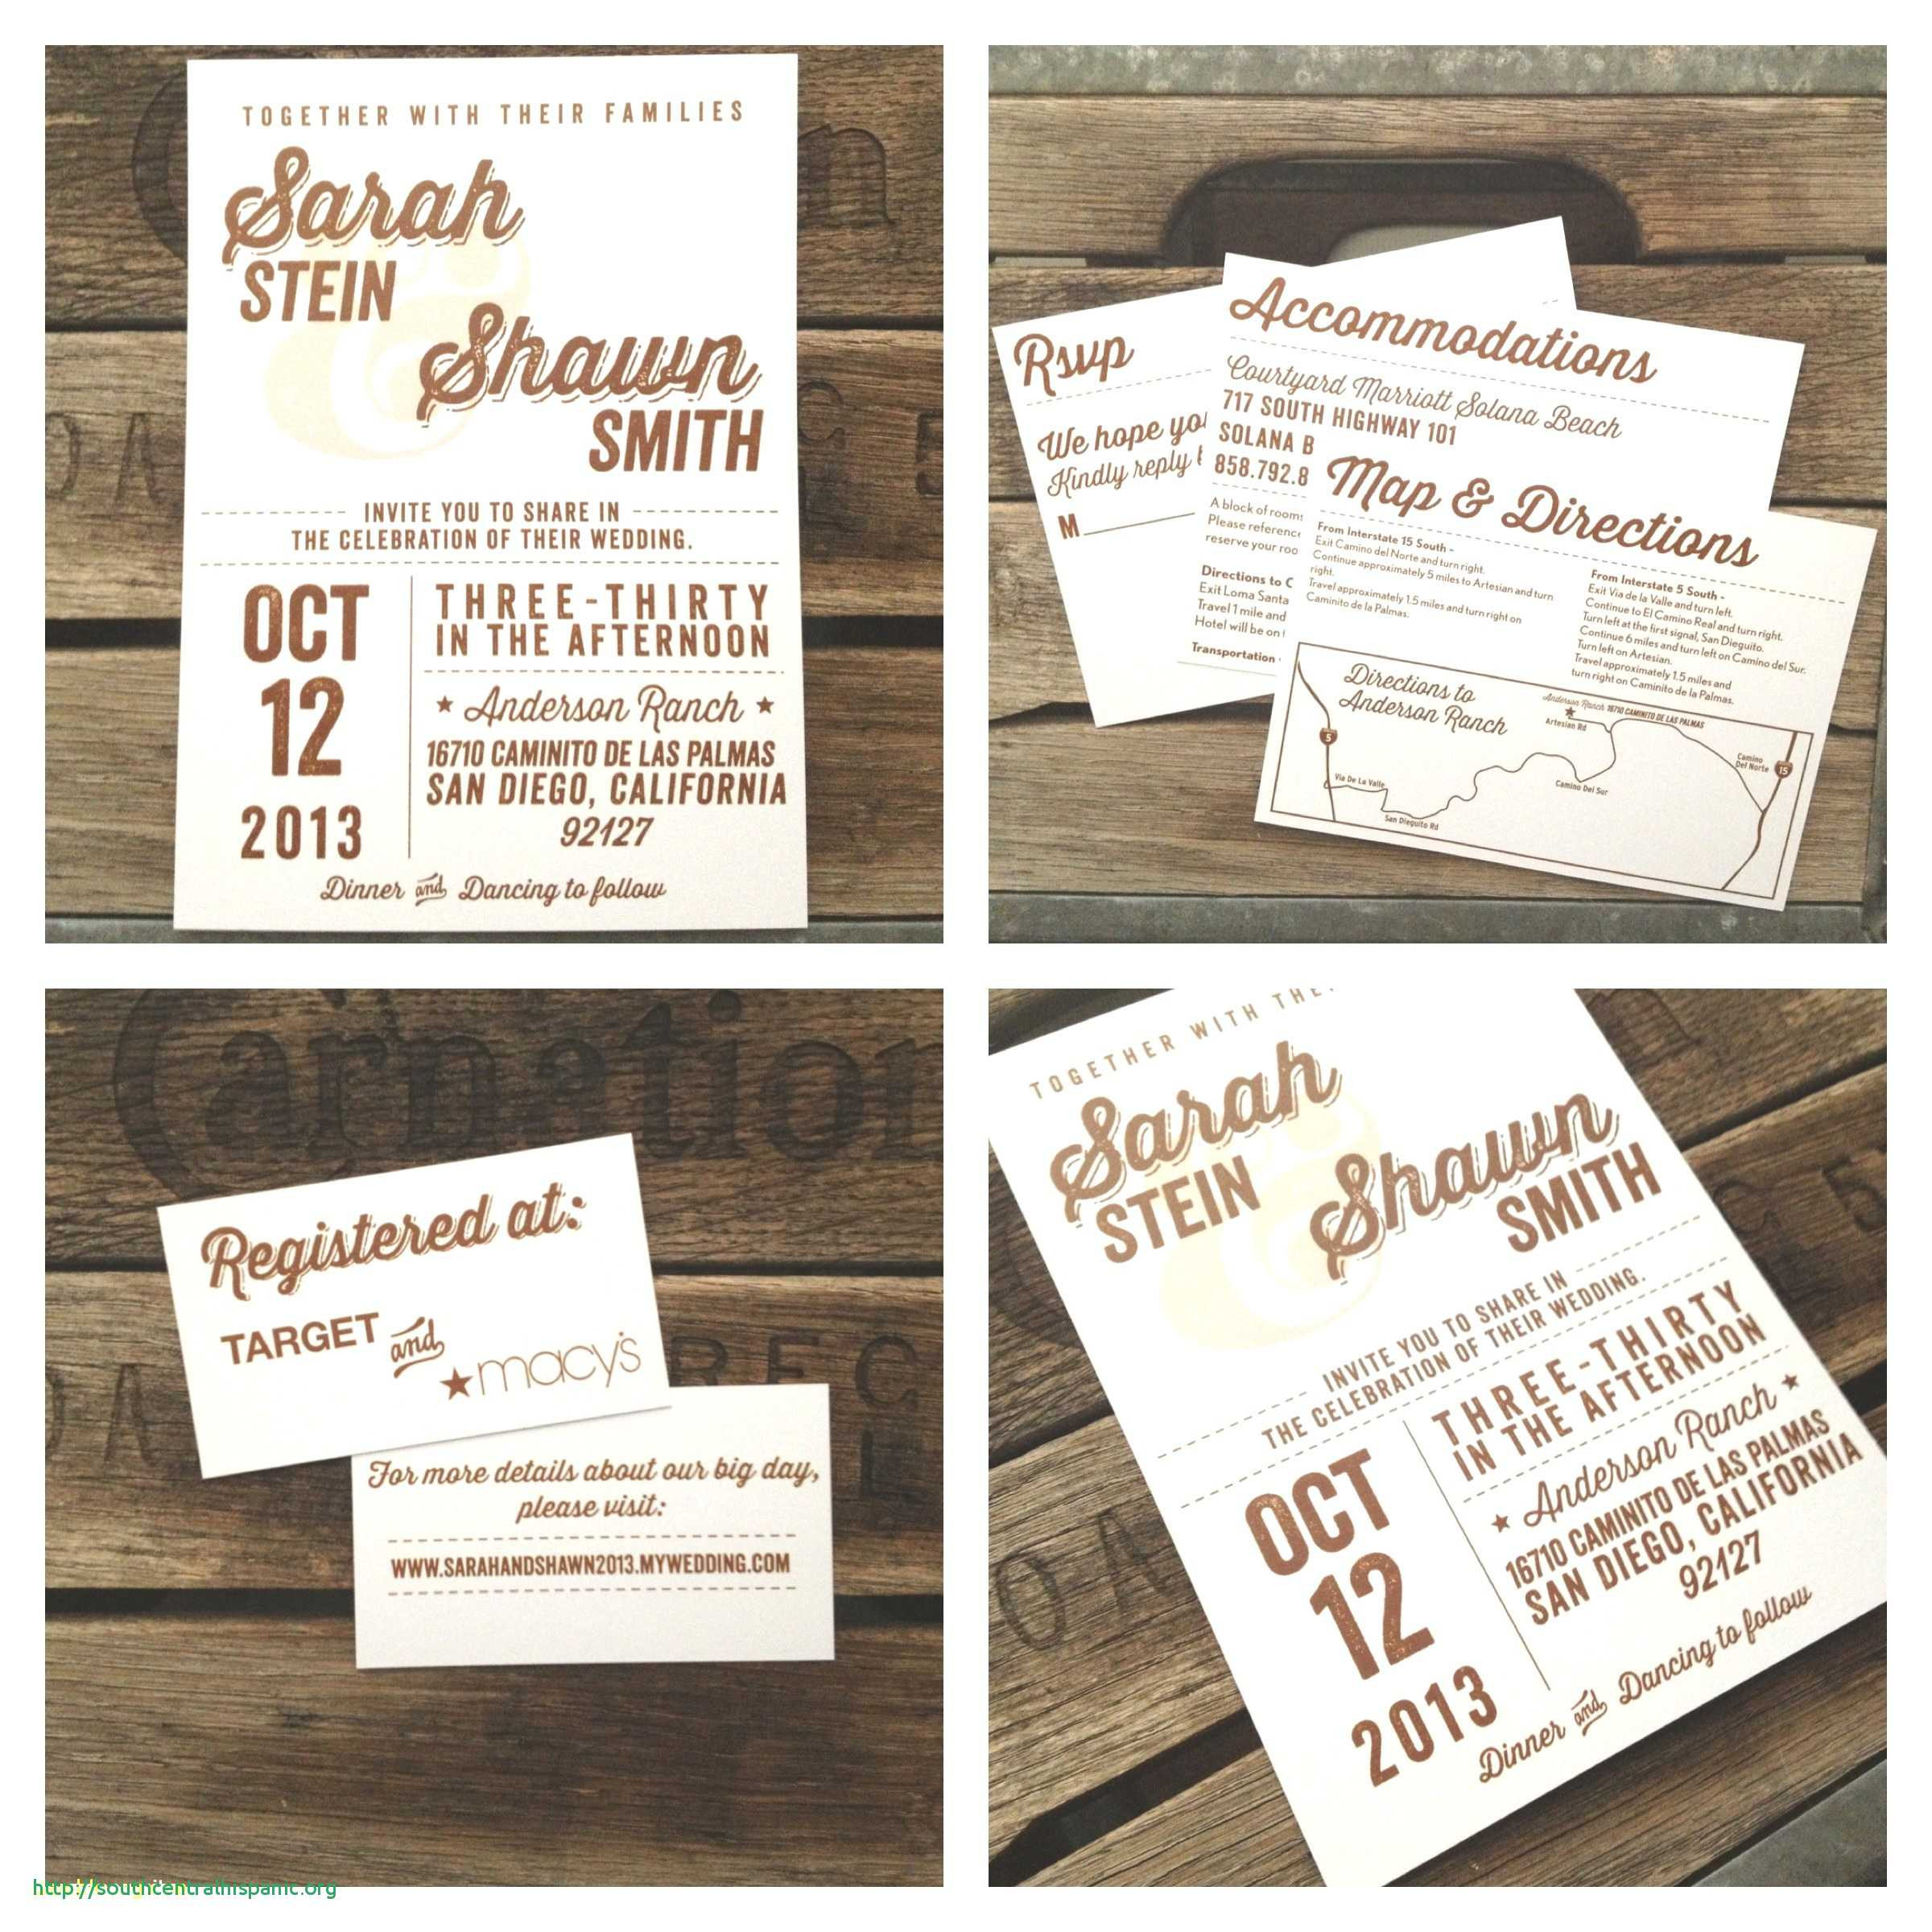 TOGETHER WITH THEIR FAMILIES
Sarah
STEIN
&
Shawn
SMITH
INVITE YOU TO SHARE IN
THE CELEBRATION OF THEIR WEDDING.
OCT
12
2013
THREE-THIRTY
IN THE AFTERNOON
★ Anderson Ranch ★
16710 CAMINITO DE LAS PALMAS
SAN DIEGO, CALIFORNIA
92127
Dinner and Dancing to follow
Rsvp
We hope yo
Kindly reply
M
Accommodations
Courtyard Marriott Solana Beach
717 SOUTH HIGHWAY 101
SOLANA B
858.792.8
A block of rooms
Please reference
reserve your roo
Directions to C
Exit Loma Santa
Travel 1 mile and
Hotel will be on
Transportation
Map & Directions
From Interstate 15 South -
Exit Camino del Norte and turn right.
Continue approximately 5 miles to Artesian and turn
right.
Travel approximately 1.5 miles and turn right on
Caminito de la Palmas.
From Interstate 5 South -
Exit Via de la Valle and turn left.
Continue to El Camino Real and turn right.
Turn left at the first signal, San Dieguito.
Continue 6 miles and turn left on Camino del Sur.
Turn left on Artesian.
Travel approximately 1.5 miles and
turn right on Caminito de la Palmas.
Directions to
Anderson Ranch
Anderson Ranch 16710 CAMINITO DE LAS PALMAS
Artesian Rd
5
Via De La Valle
San Dieguito Rd
Camino Del Sur
Camino
Del Norte
15
Carnation
Registered at:
TARGET and
★macy's
REC
For more details about our big day,
please visit:
WWW.SARAHANDSHAWN2013.MYWEDDING.COM
TOGETHER WITH THE
Sarah
STEIN
&
Shawn
SMITH
INVITE YOU TO SHARE IN
THE CELEBRATION OF THEIR WEDDING.
OCT
12
2013
THREE-THIRTY
IN THE AFTERNOON
★ Anderson Ranch ★
16710 CAMINITO DE LAS PALMAS
SAN DIEGO, CALIFORNIA
92127
Dinner and Dancing to follow
http://southcentralhispanic.org